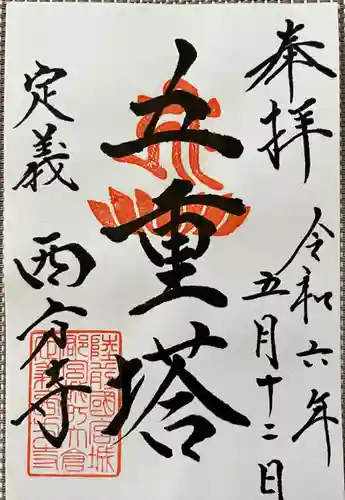 奉拝
令和六年
五月十二日
五重塔
定義
西方寺